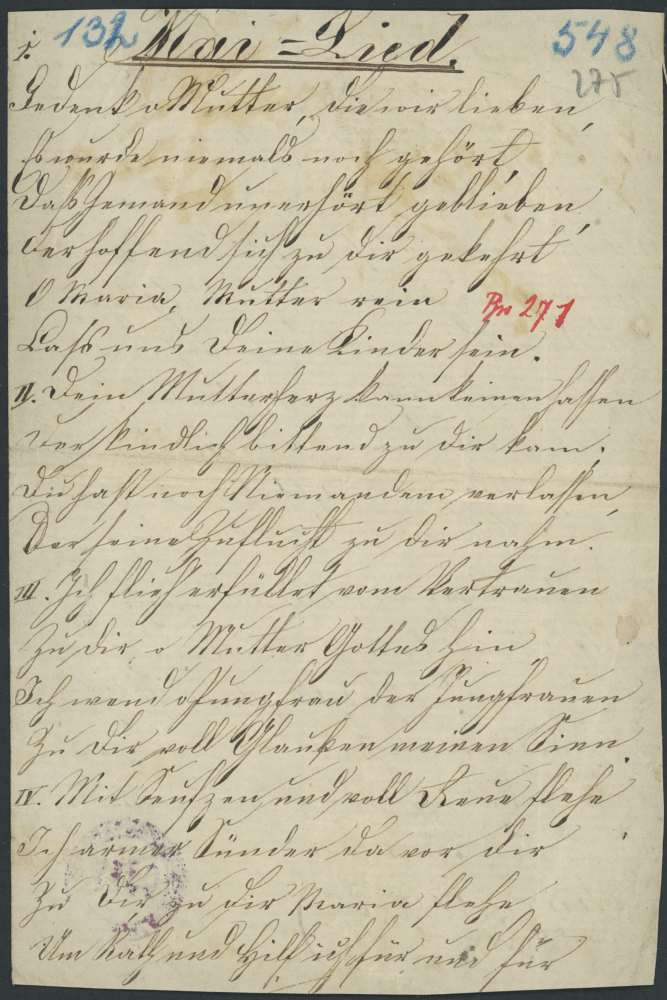 132
548
275
I. Mai=Lied.
Gedenk o Mutter, die wir lieben,
Es wurde niemals noch gehört,
Daß Jemand unerhört geblieben,
Der hoffend sich zu dir gekehrt
O Maria, Mutter rein
271
Lass uns Deine Kinder sein.
II. Dein Mutterherz kann keinen hassen
Der kindlich bittend zu dir kam;
Du hast noch Niemandem verlassen,
Der seine Zuflucht zu dir nahm.
III. Ich flieh erfüllet vom Vertrauen
Zu dir o Mutter Gottes hin
Ich wend o Jungfrau der Jungfrauen
Zu Dir voll Glauben meinen Sinn.
IV. Mit Seufzen und voll Reue flehe
Ich armer Sünder da vor dir
Zu Dir zu dir Maria flehe
Um Rath und Hilf ich für und für